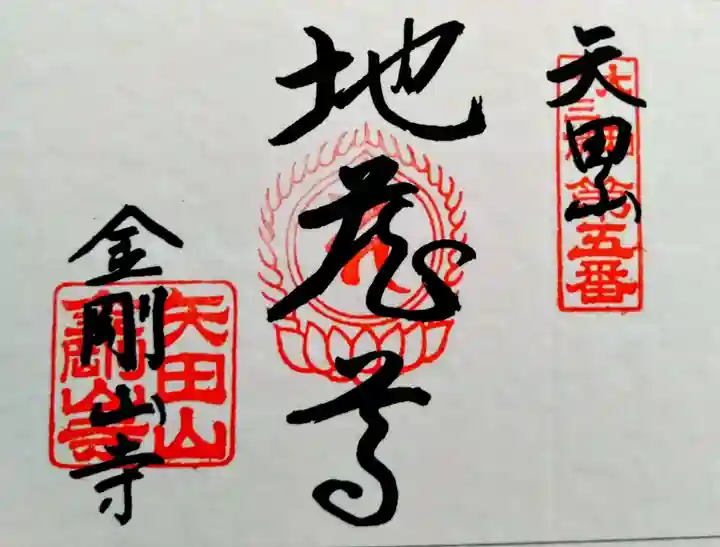 矢田山
十三佛第五番
地蔵尊
金剛山寺
矢田山
金剛山寺